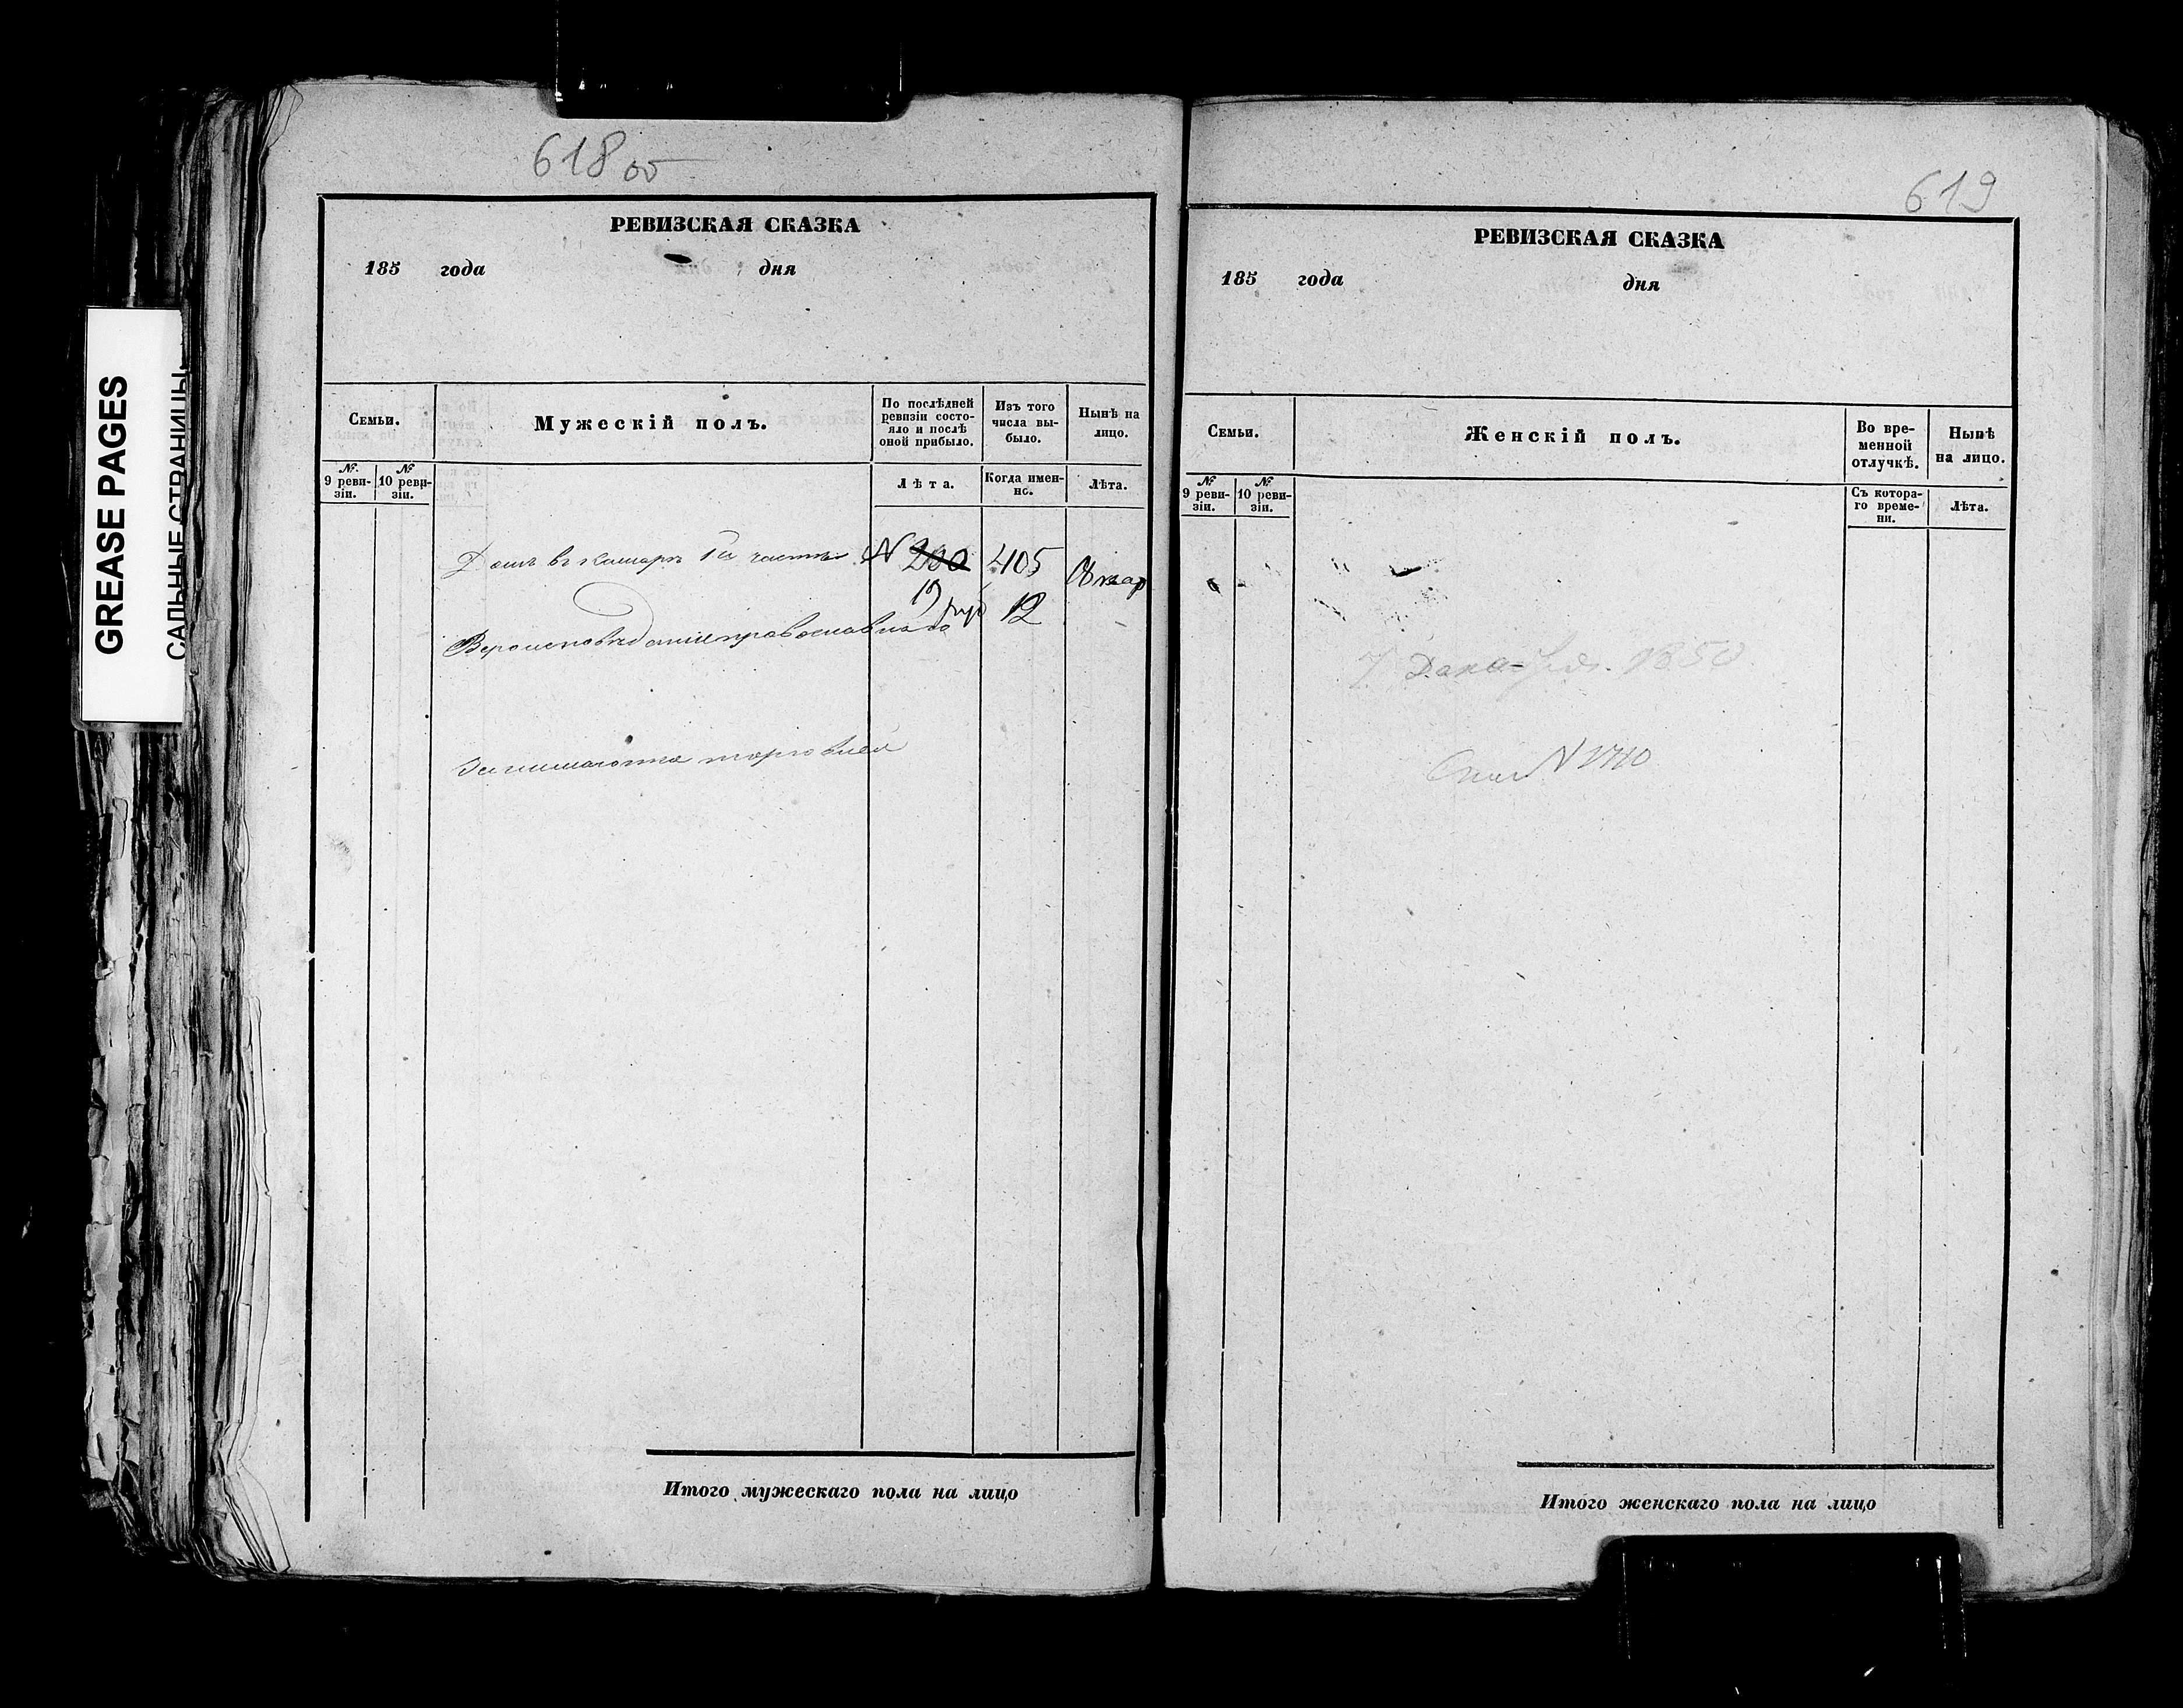 GREASE PAGES
САЛЬНЫЕ СТРАНИЦЫ
618 об
РЕВИЗСКАЯ СКАЗКА
185 года дня
Семьи.
Мужескій полъ.
По послѣдней ревизіи состо-
яло и послѣ оной прибыло.
Изъ того числа вы-
было.
Нынѣ на лицо.
№. 9 реви-
зіи.
№ 10 реви-
зіи.
Лѣта.
Когда имен-
но.
Лѣта.
Домъ въ 1й части N 200 405
19 руб 12
Вероисповѣданія православнаго
Занимается торговлей
Итого мужескаго пола на лицо
619
РЕВИЗСКАЯ СКАЗКА
185 года дня
Семьи.
Женскій полъ.
Во вре-
менной
отлучкѣ.
Нынѣ
на лицо.
№ 9 реви-
зіи.
№ 10 реви-
зіи.
Съ котора-
го време-
ни.
Лѣта.
7 Декабря. 1850
N 1710
Итого женскаго пола на лицо